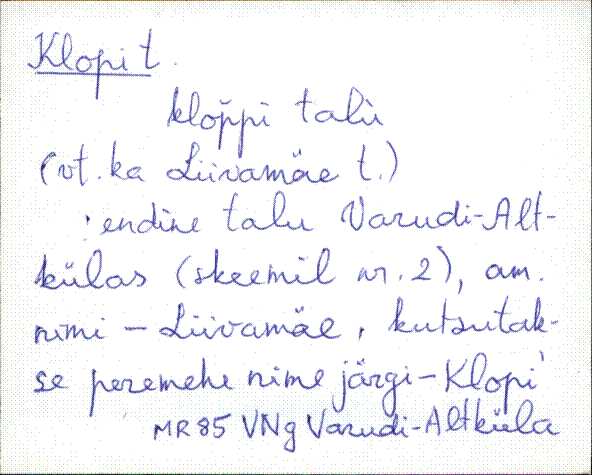 Klopi t.
kloppi talu
(vt. ka Liivamäe t.)
: endine talu Varudi-Alt-
külas (skeemil nr. 2), am.
nimi – Liivamäe, kutsutak-
se peremehe nime järgi – Klopi
MR 85 VNg Varudi-Altküla